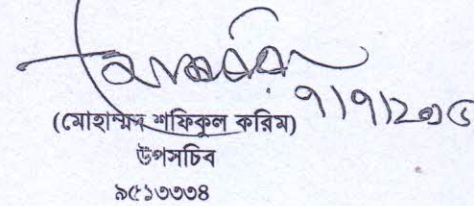 (মোহাম্মদ শফিকুল করিম)
উপসচিব
৯৫১৩৩৩৪